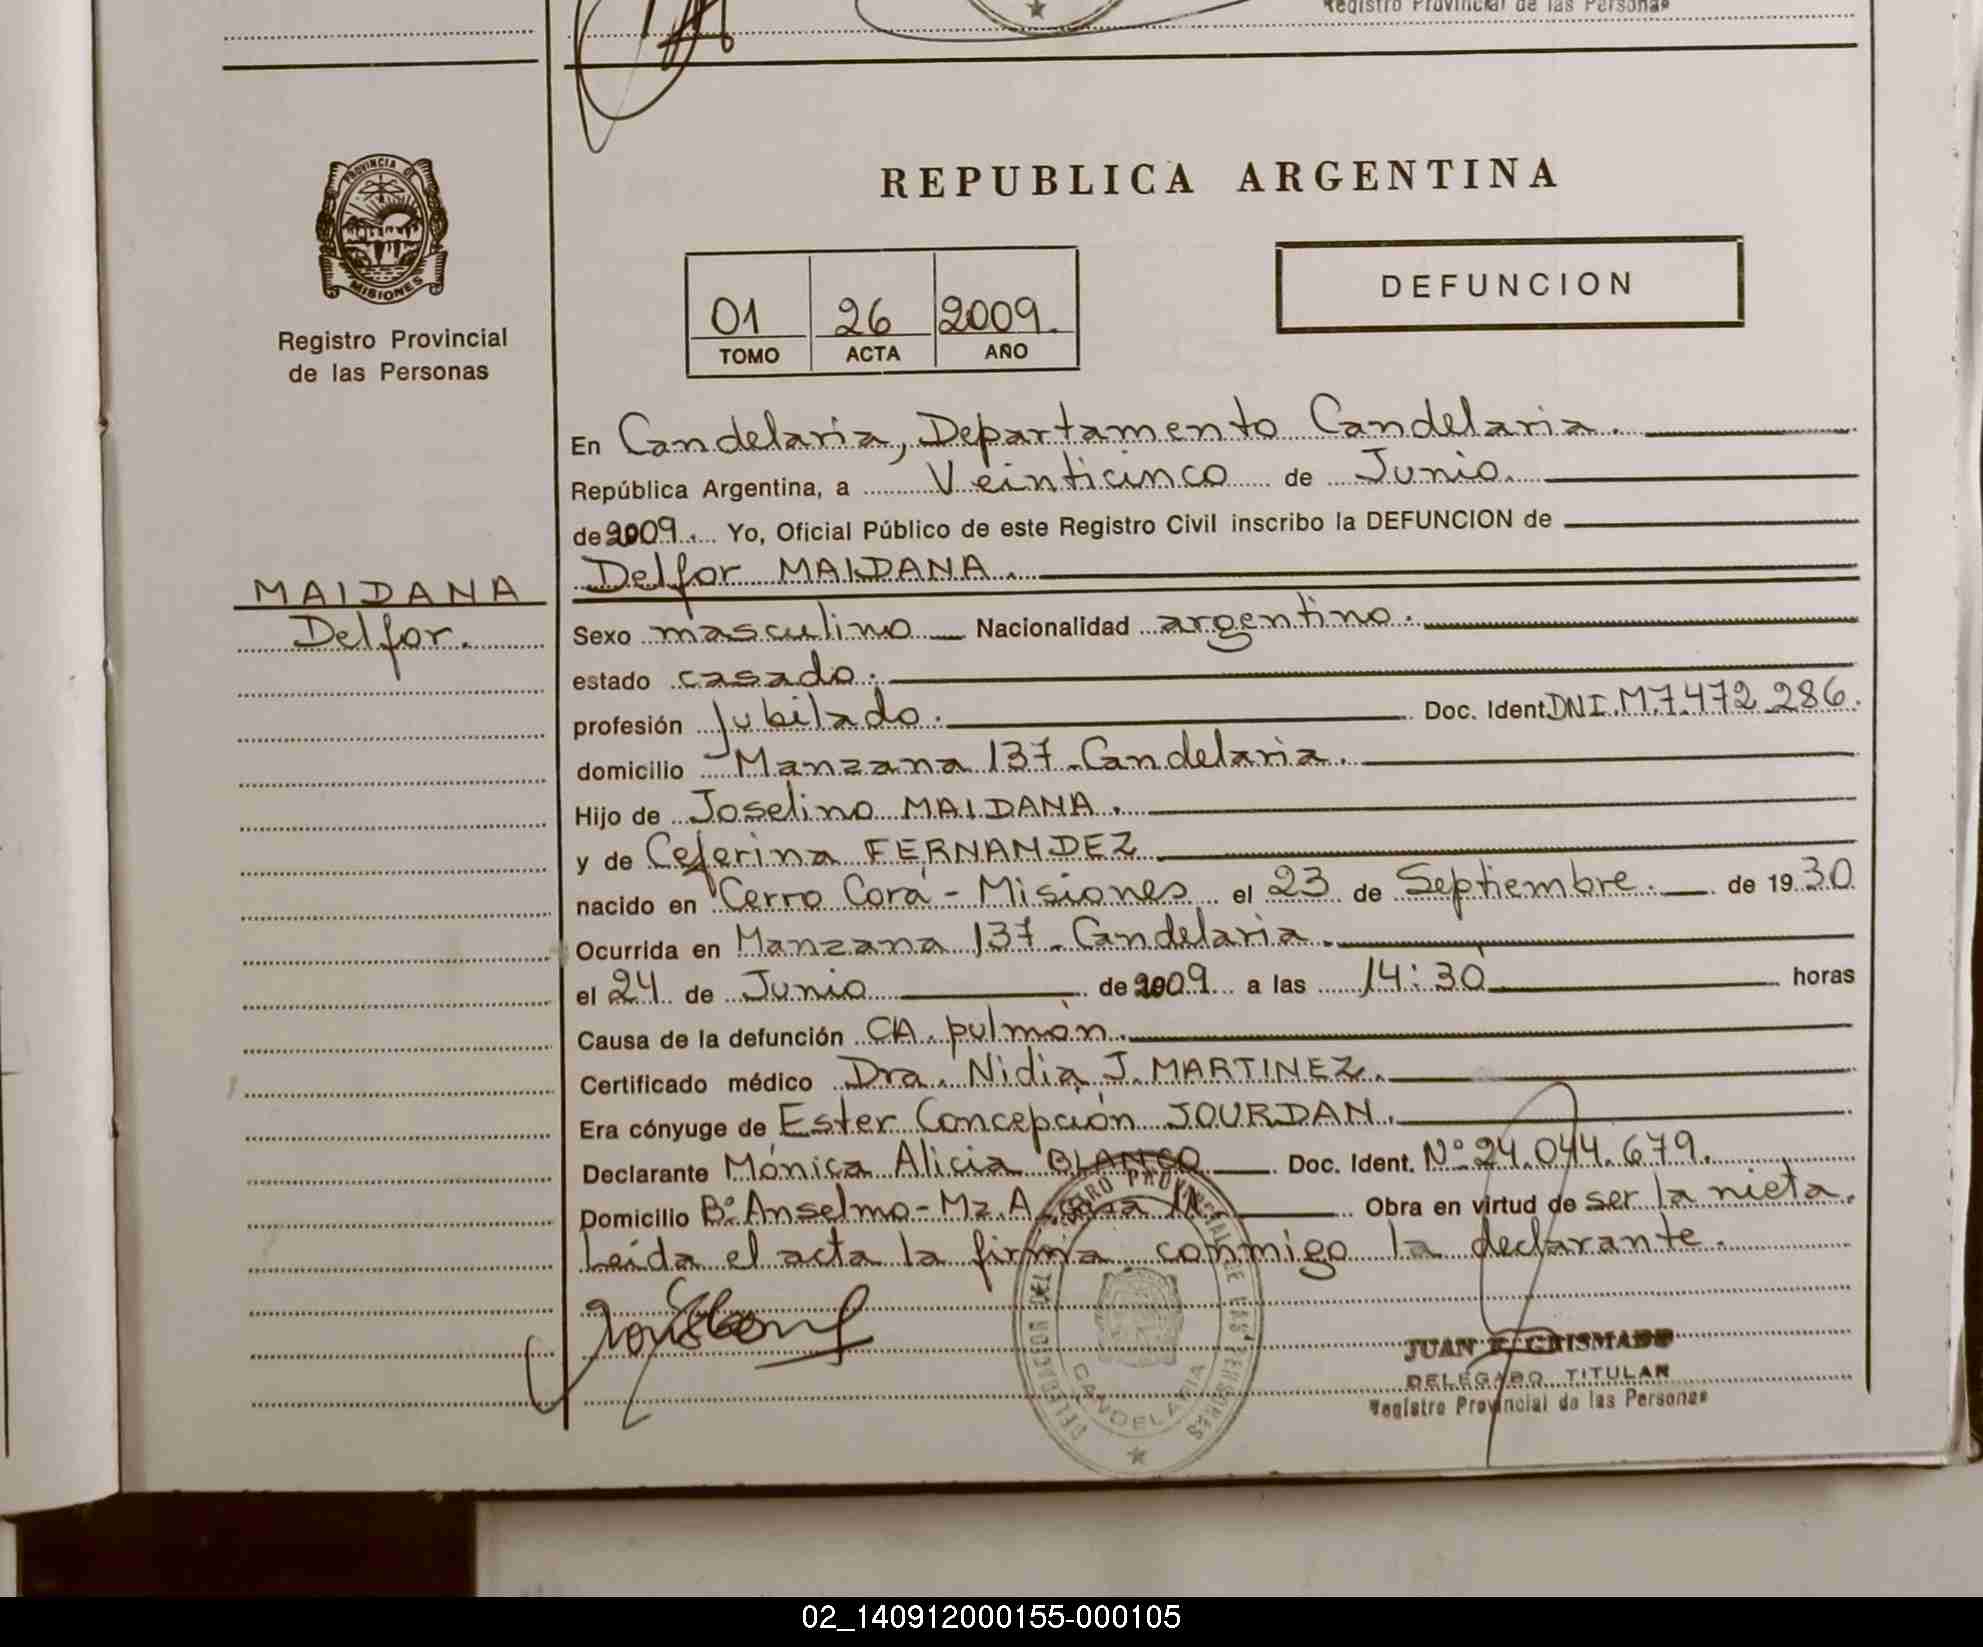 Registro Provincial de las Personas
PROVINCIA DE
MISIONES
Registro Provincial
de las Personas
REPUBLICA ARGENTINA
01 26 2009.
TOMO ACTA AÑO
DEFUNCION
En Candelaria, Departamento Candelaria.
República Argentina, a Veinticinco de Junio.
de 2009. Yo, Oficial Público de este Registro Civil inscribo la DEFUNCION de
Delfor MAIDANA.
MAIDANA
Delfor.
Sexo masculino Nacionalidad argentino.
estado casado.
profesión Jubilado. Doc. Ident. DNI.M.7.472.286.
domicilio Manzana 137-Candelaria.
Hijo de Joselino MAIDANA.
y de Ceferina FERNANDEZ
nacido en Cerro Corá - Misiones el 23 de Septiembre. de 1930
Ocurrida en Manzana 137-Candelaria.
el 24 de Junio de 2009 a las 14:30 horas
Causa de la defunción CA. pulmón.
Certificado médico Dra. Nidia J. MARTINEZ.
Era cónyuge de Ester Concepción JOURDAN.
Declarante Mónica Alicia BLANCO Doc. Ident. Nº 24.044.679.
Domicilio Bº Anselmo-Mz. A Obra en virtud de ser la nieta.
Leída el acta la firma conmigo la declarante.
DELEGACION DEL REGISTRO PROVINCIAL DE LAS PERSONAS
CANDELARIA
JUAN GRISMADO
DELEGADO TITULAR
Registro Provincial de las Personas
02_140912000155-000105